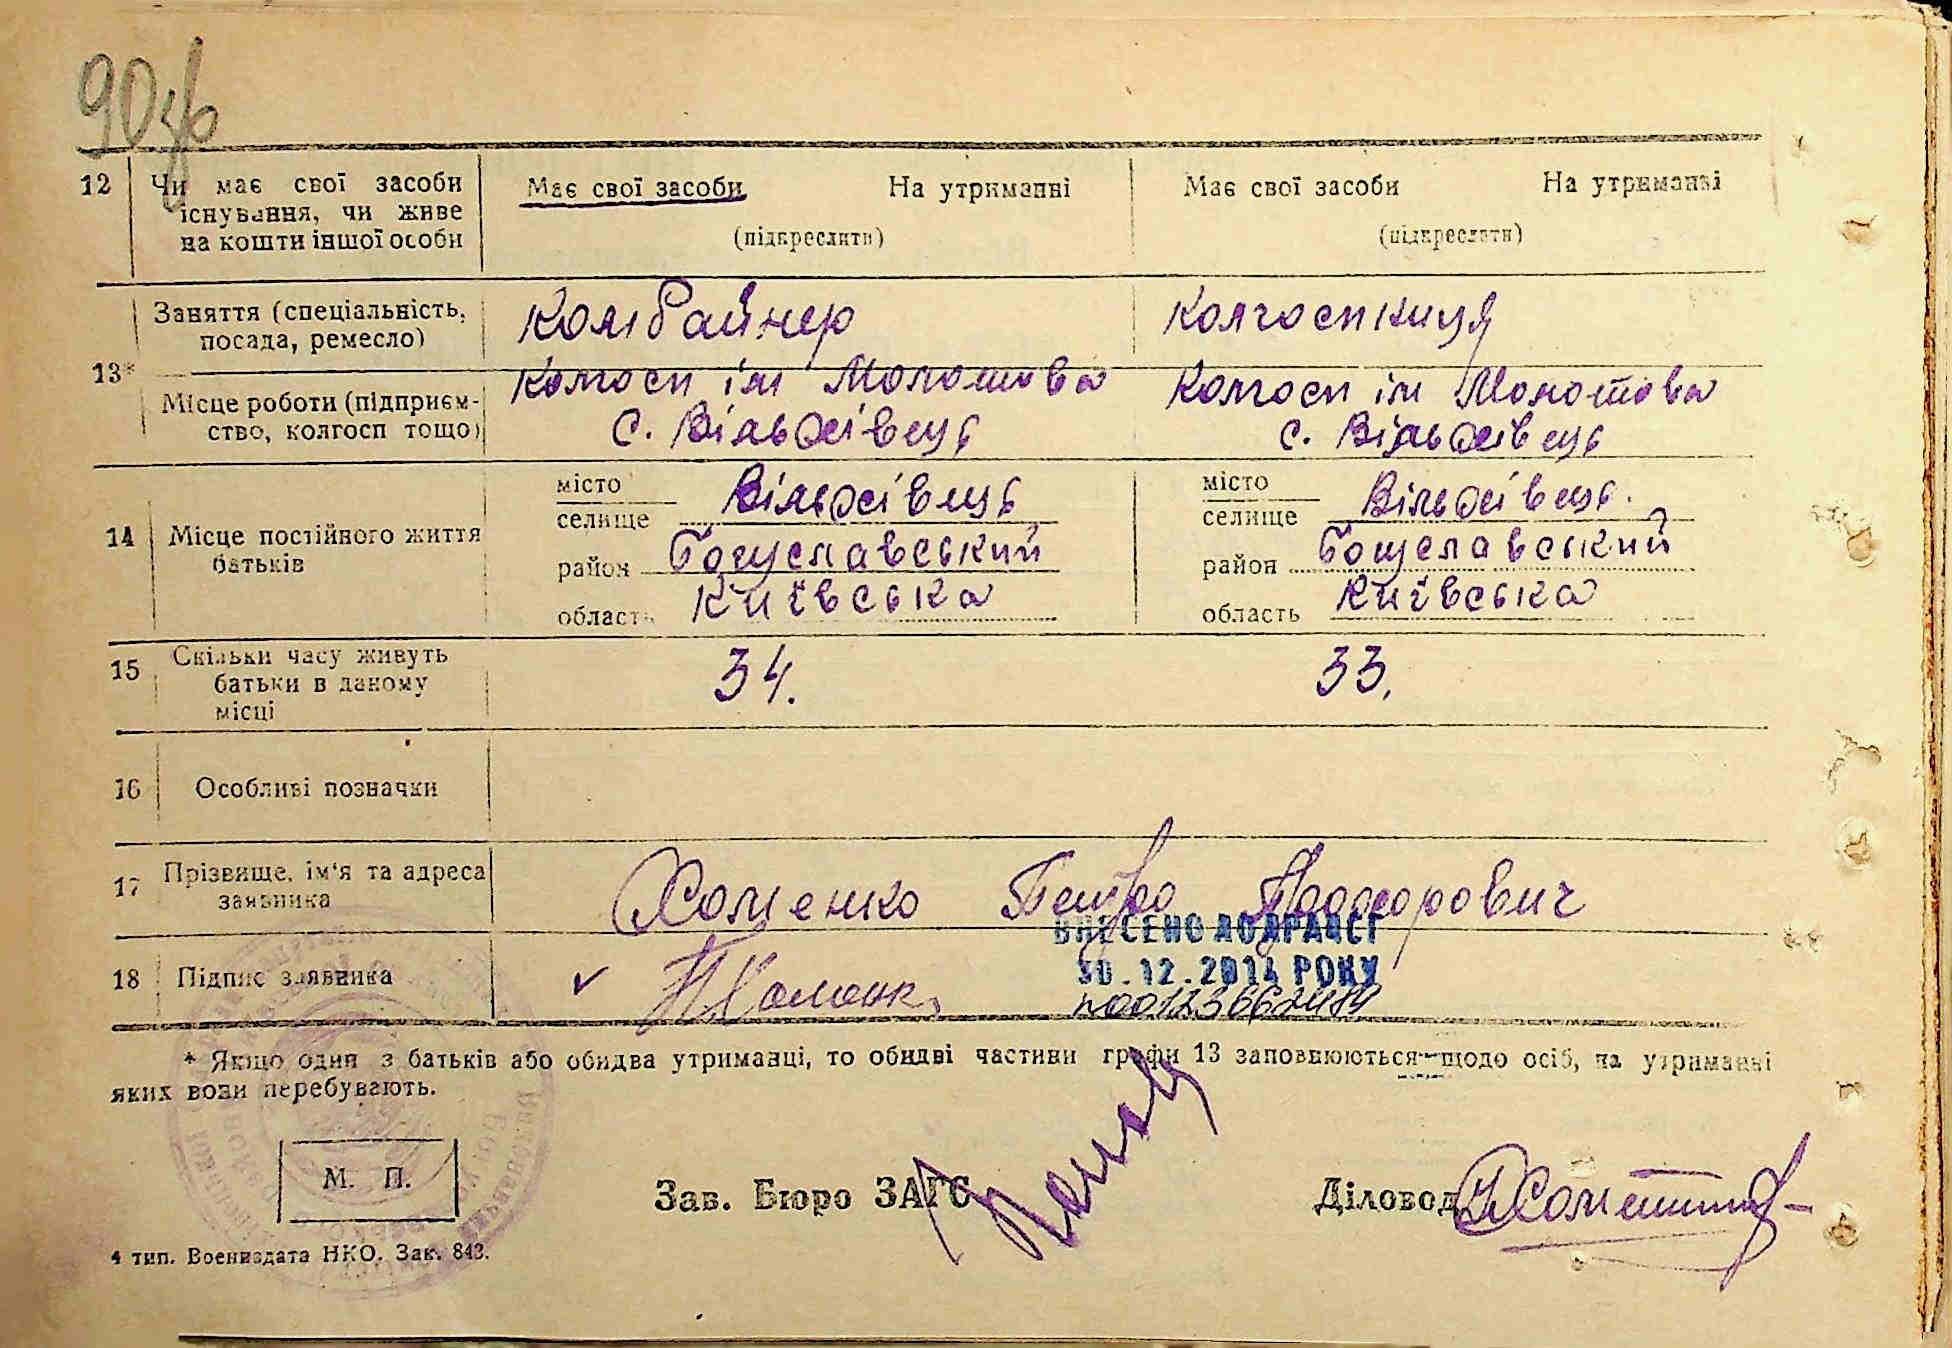 90зв
12 Чи має свої засоби існування, чи живе на кошти іншої особи
Має свої засоби На утриманні
(підкреслити)
Має свої засоби На утриманні
(підкреслити)
13*
Заняття (спеціальність, посада, ремесло)
Комбайнер
Колгоспниця
Місце роботи (підприєм-
ство, колгосп тощо)
Колгосп ім Молотова
с. Вільхівець
Колгосп ім Молотова
с. Вільхівець
14 Місце постійного життя батьків
місто
селище Вільхівець
район Богуславський
область Київська
місто
селище Вільхівець.
район Богуславський
область Київська
15 Скільки часу живуть батьки в даному місці
34.
33.
16 Особливі позначки
17 Прізвище, ім'я та адреса заявника
Хоменко Петро
ВНЕСЕНО ДО ДРАЦСГ
30.12.2014 РОКУ
18 Підпис заявника
* Якщо один з батьків або обидва утриманці, то обидві частини графи 13 заповнюються щодо осіб, на утриманні
яких вони перебувають.
М. П.
Зав. Бюро ЗАГС
Діловод
4 тип. Воениздата НКО. Зак. 843.